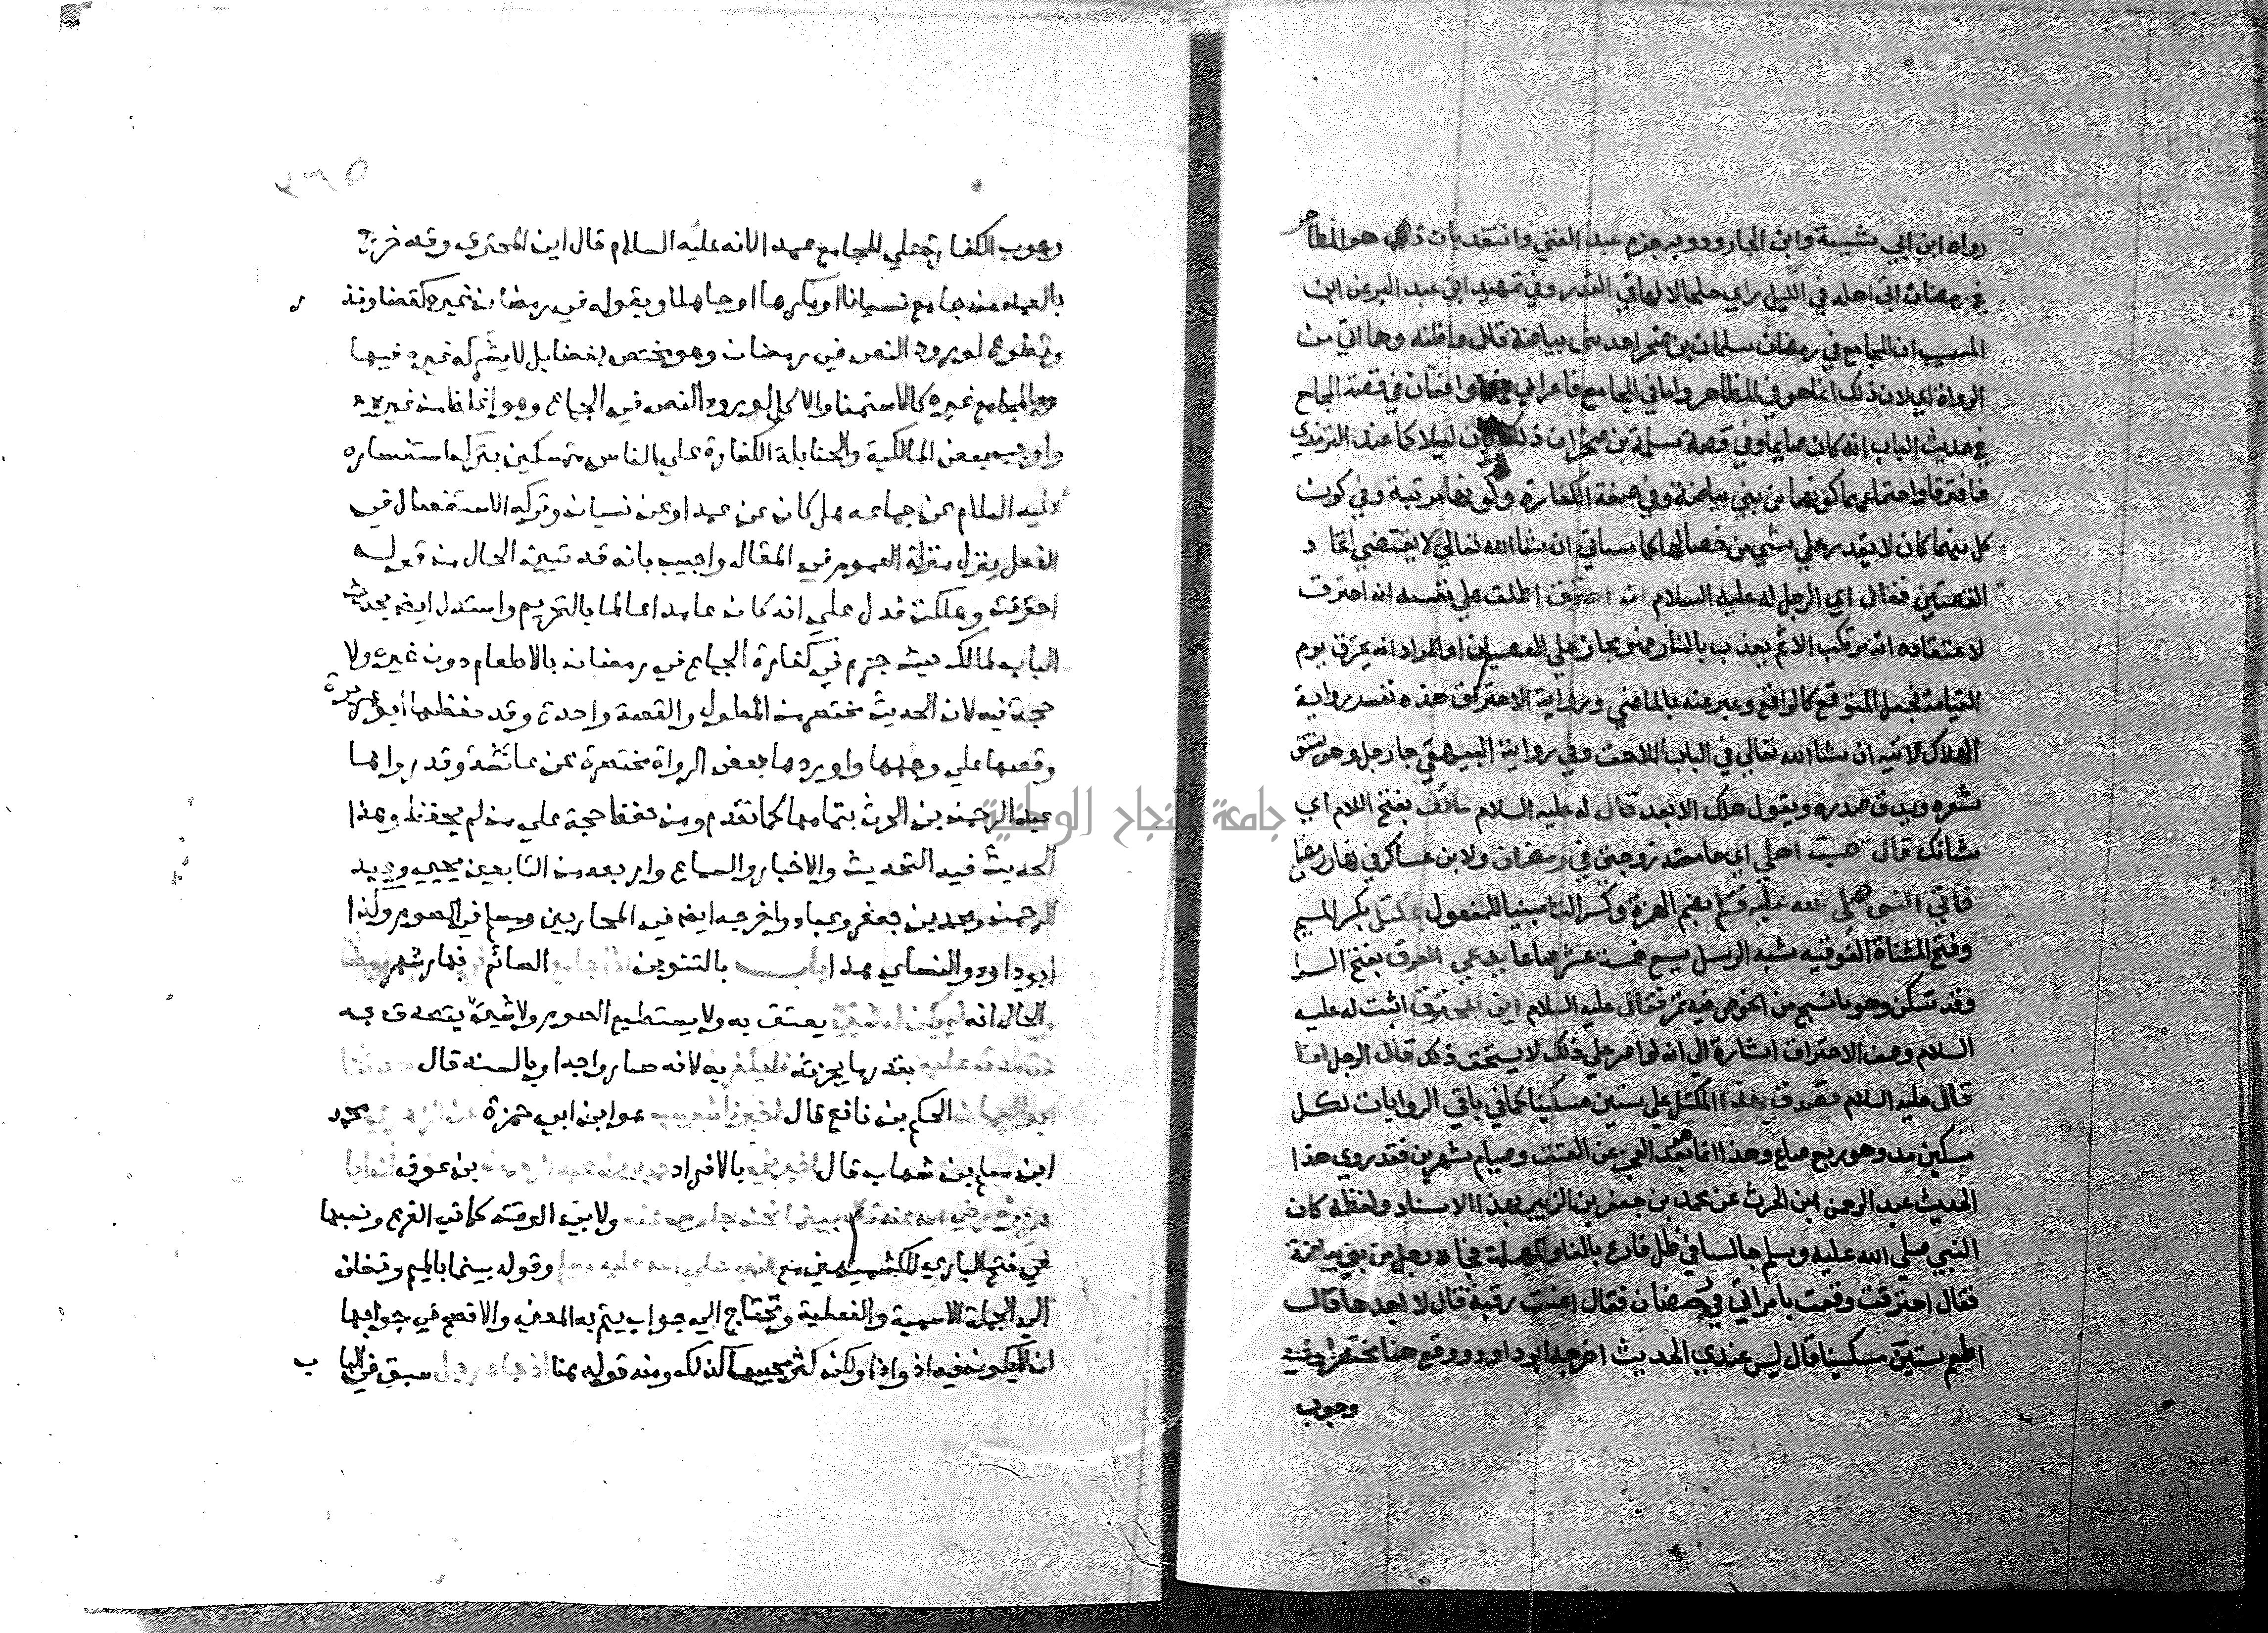 رواه ابن ابي شيبة وابن الجارود وبه جزم عبد الغني وانتقد بان ذلك هو المظاهر
في رمضان اتي اهله في الليل راي خلخالا لها في القمر وفي تمهيد ابن عبد البر عن ابن
المسيب ان المجامع في رمضان سلمان بن صخر احد بني بياضة قال واظنه وهما اتي من
الرواة اي لان ذلك انما هو في المظاهر واما في المجامع فاعرابي فهما واقعتان في قصة المجامع
في حديث الباب انه كان صايما وفي قصة سلمة بن صخر ان ذلك كان ليلا كما عند الترمذي
فافترقا واجتماعهما كونهما من بني بياضة وفي صفة الكفارة وكونها مرتبة وفي كون
كل منهما كان لا يقدر علي شي من خصالها كما سياتي ان شا الله تعالي لا يقتضي اتحاد
القصتين فقال اي الرجل له عليه السلام انه احترق اطلق علي نفسه انه احترق
لاعتقاده ان مرتكب الاثم يعذب بالنار فهو مجاز علي العصيان او المراد انه يحترق يوم
القيامة فجعل المتوقع كالواقع وعبر عنه بالماضي ورواية الاحتراق هذه تفسر رواية
الهلاك الاتيه ان شا الله تعالي في الباب اللاحق وفي رواية البيهقي جا رجل وهو ينتف
شعره ويدق صدره ويقول هلك الابعد قال له عليه السلام مالك بفتح اللام اي
شانك قال اصبت اهلي اي جامعت زوجتي في رمضان ولابن عساكر في نهار رمضان
فاتي النبي صلي الله عليه وسلم بضم الهمزة وكسر التا مبنيا للمفعول بمكتل بكسر الميم
وفتح المثناة الفوقيه شبه الزبيل يسع خمسة عشر صاعا يدعي العرق بفتح الرا
وقد تسكن وهو ما نسج من الخوص فيه تمر فقال عليه السلام اين المحترق اثبت له عليه
السلام وصف الاحتراق اشارة الي انه لو اصر علي ذلك لاستحق ذلك قال الرجل انا
قال عليه السلام تصدق بهذا المكتل علي ستين مسكينا كما في باقي الروايات لكل
مسكين مد وهو ربع صاع وهذا انما هو بعد العجز عن العتق وصيام شهرين فقد روي هذا
الحديث عبد الرحمن بن الحرث عن محمد بن جعفر بن الزبير بهذا الاسناد ولفظه كان
النبي صلي الله عليه وسلم جالسا في ظل فارع بالفا والمهملة فجاه رجل من بني بياضة
فقال احترقت وقعت بامراتي في رمضان فقال اعتق رقبة قال لا اجدها قال
اطعم ستين مسكينا قال ليس عندي الحديث اخرجه ابو داود ووقع هنا مختصرا وفيه
وجوب
وجوب الكفارة علي المجامع عمدا لانه عليه السلام قال اين المحترق وقد خرج
بالعمد من جامع ناسيا او مكرها او جاهلا وبقوله في رمضان غيره كقضا ونذر
وتطوع لورود النص في رمضان وهو يختص بفضايل لا يشركه غيره فيها
وبالمجامع غيره كالاستمنا والاكل لورود النص في الجماع وهو اغلظ من غيره
واوجب بعض المالكية والحنابلة الكفارة علي الناس متمسكين بترك استفساره
عليه السلام عن جماعه هل كان عن عمد او عن نسيان وترك الاستفصال في
الفعل ينزل منزلة العموم في المقال واجيب بانه قد تبين الحال من قوله
احترقت وهلكت فدل علي انه كان عامدا عالما بالتحريم واستدل ايضا بحديث
الباب لمالك حيث جزم في كفارة الجماع في رمضان بالاطعام دون غيره ولا
حجة فيه لان الحديث مختصر من المطول والقصة واحدة وقد حفظها ابو هريرة
وقصها علي وجهها واوردها بعض الرواة مختصرة عن عائشة وقد رواها
عبد الرحمن بن الحرث بتمامها كما تقدم ومن حفظ حجة علي من لم يحفظ وهذا
الحديث فيه التحديث والاخبار والسماع واربعة من التابعين يحيي وعبد
الرحمن ومحمد بن جعفر وعباد واخرجه ايضا في المحاربين ومسلم في الصوم وكذا
ابو داود والنساي هذا باب بالتنوين اذا جامع الصائم في نهار شهر رمضان
والحال انه لم يكن له شيء يعتق به ولا يستطيع الصوم ولا شيء يتصدق به
فتصدق عليه بقدر ما يجزئه فليكفر به لانه صار واجدا وبالسند قال حدثنا
ابو اليمان الحكم بن نافع قال اخبرنا شعيب هو ابن ابي حمزة عن الزهري محمد
ابن مسلم بن شهاب قال اخبرني بالافراد حميد بن عبد الرحمن بن عوف ان ابا
هريرة رضي الله عنه قال بينما نحن جلوس عند ولابي الوقت كما في الفرع ونسبها
في فتح الباري للكشميهني مع النبي صلي الله عليه وسلم وقوله بينما بالميم وتضاف
الي الجملة الاسمية والفعلية وتحتاج الي جواب يتم به المعني والافصح في جوابها
ان لا يكون فيه اذ واذا ولكن كثر مجيئها كذلك ومنه قوله هنا اذ جاه رجل سبق في الباب